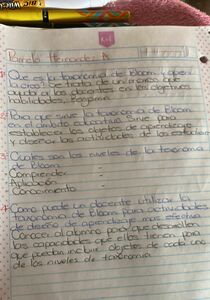 Pamela Hernandez A
1 Que es la taxonomia de Bloom y quien
la creo? Se trata de un texto que
ayudara a los docentes en los objetivos
habilidades.
2 Para que sirve la taxonomia de Bloom
en el ambito educativo Sirve para
establecer los objetos de aprendizaje
y diseñar las actividades de los estudian
3 Cuales son los niveles de la taxonomia
de Bloom
Comprender
Aplicación
Conocimiento
4 Como puede un docente utilizar la
taxonomia de Bloom para actividades
de diseño de aprendizaje mas efectiva
Conocer al alumno para que desarrollen
las capacidades que ellos tienen para
que puedan incluir objetos de cada uno
de los niveles de taxonomia